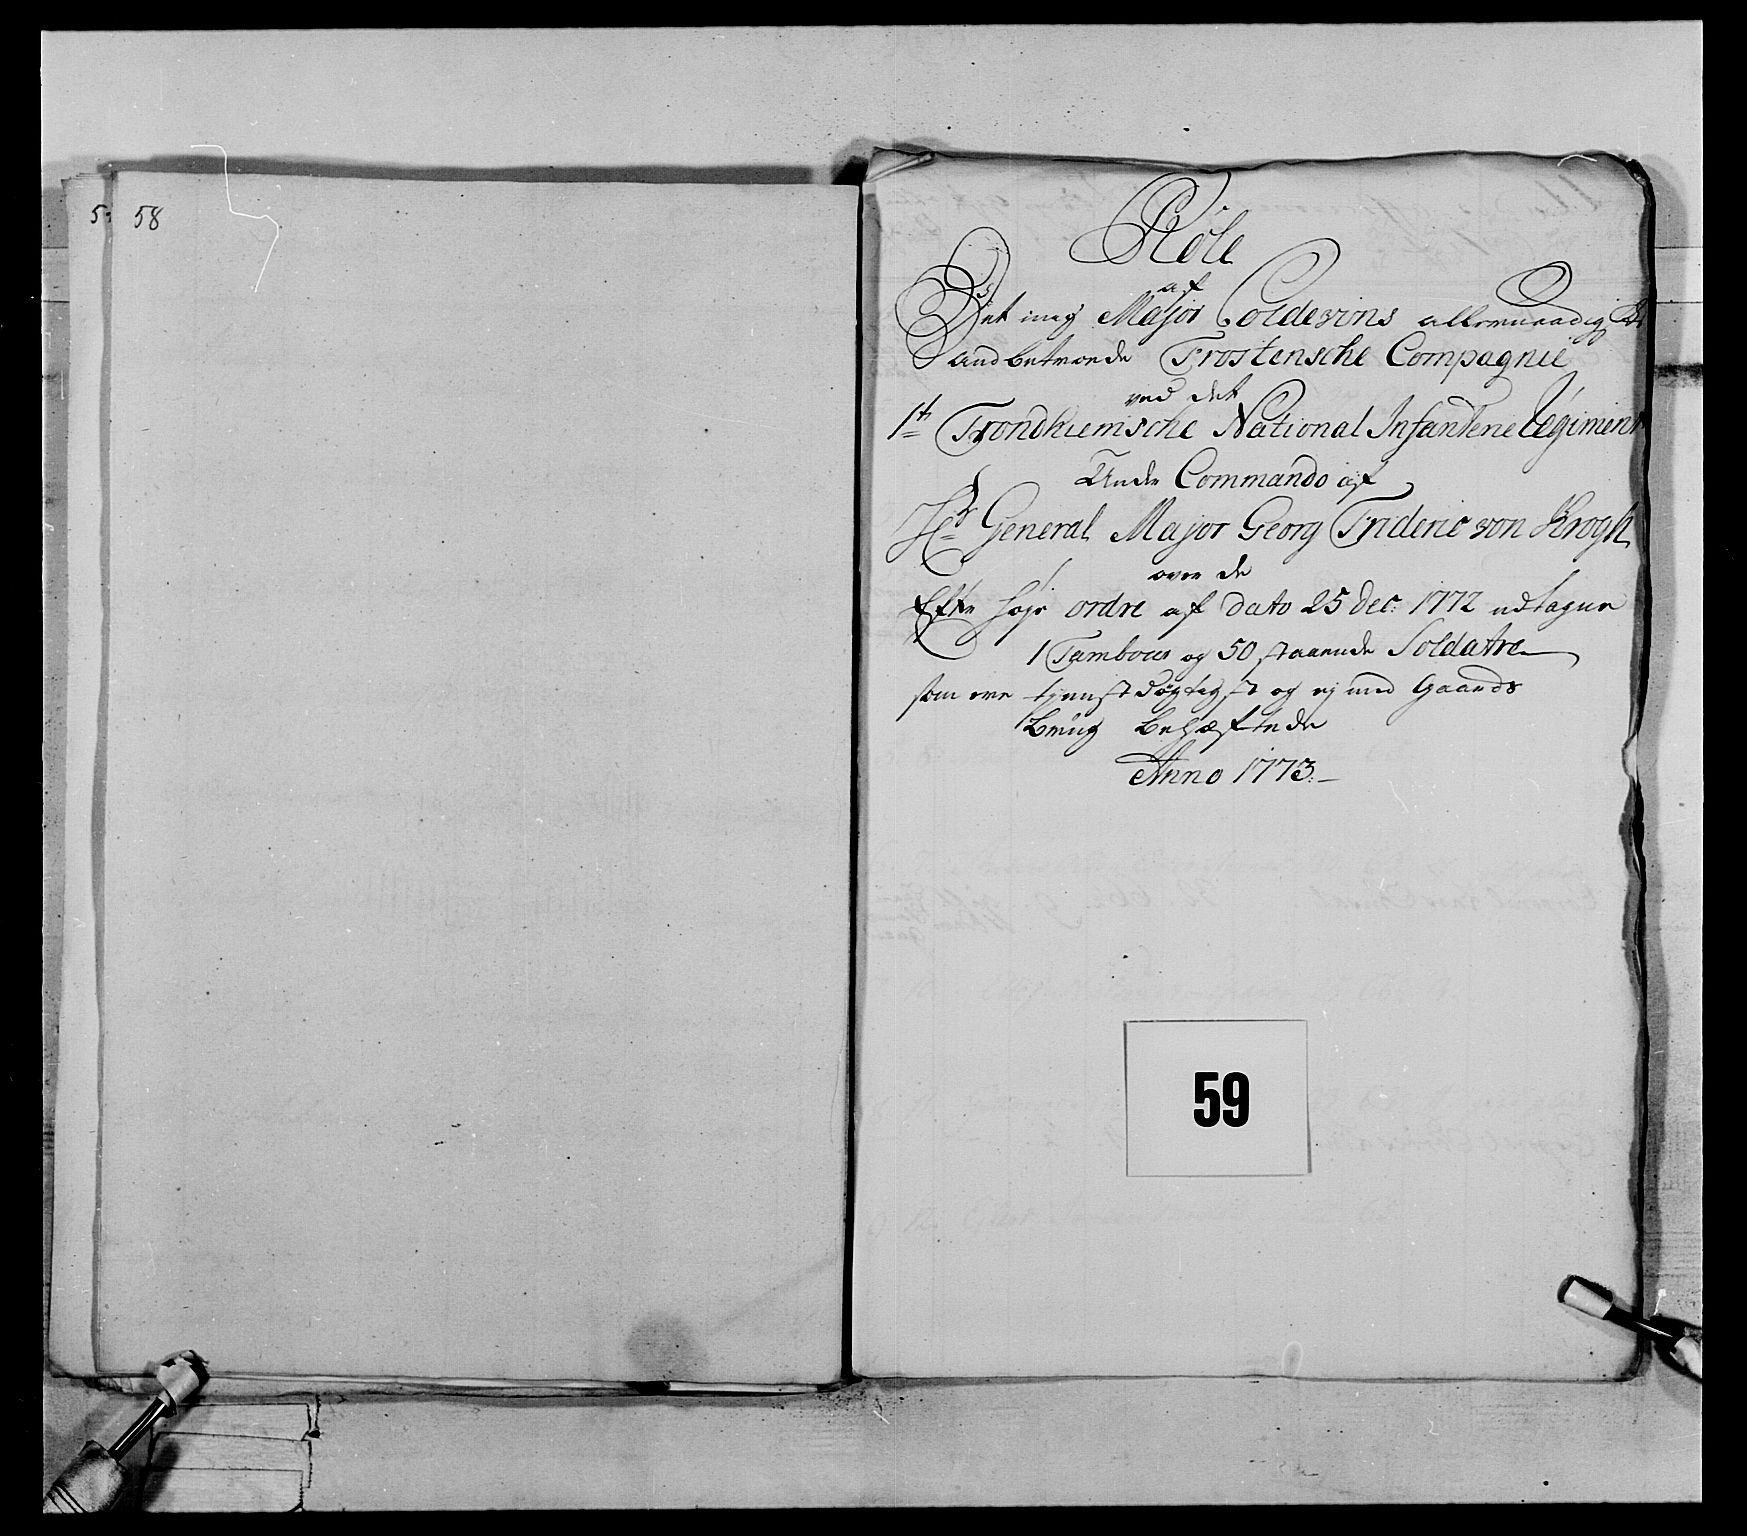 5
58
Role
af
Det mig Major Coldevins allernaadigst
anbetroede Frostensche Compagnie
ved det
1te Trondhiemsche National Infanterie Regiment
Under Commando af
Hr General Major Georg Frideric von Krogh
over de
Efter høje ordre af dato 25 Dec: 1772 udtagne
1 Tambour og 50 staaende Soldatre
som ere tjenstdøgtigst og ej med Gaards
Brug behæftede
Anno 1773.
59